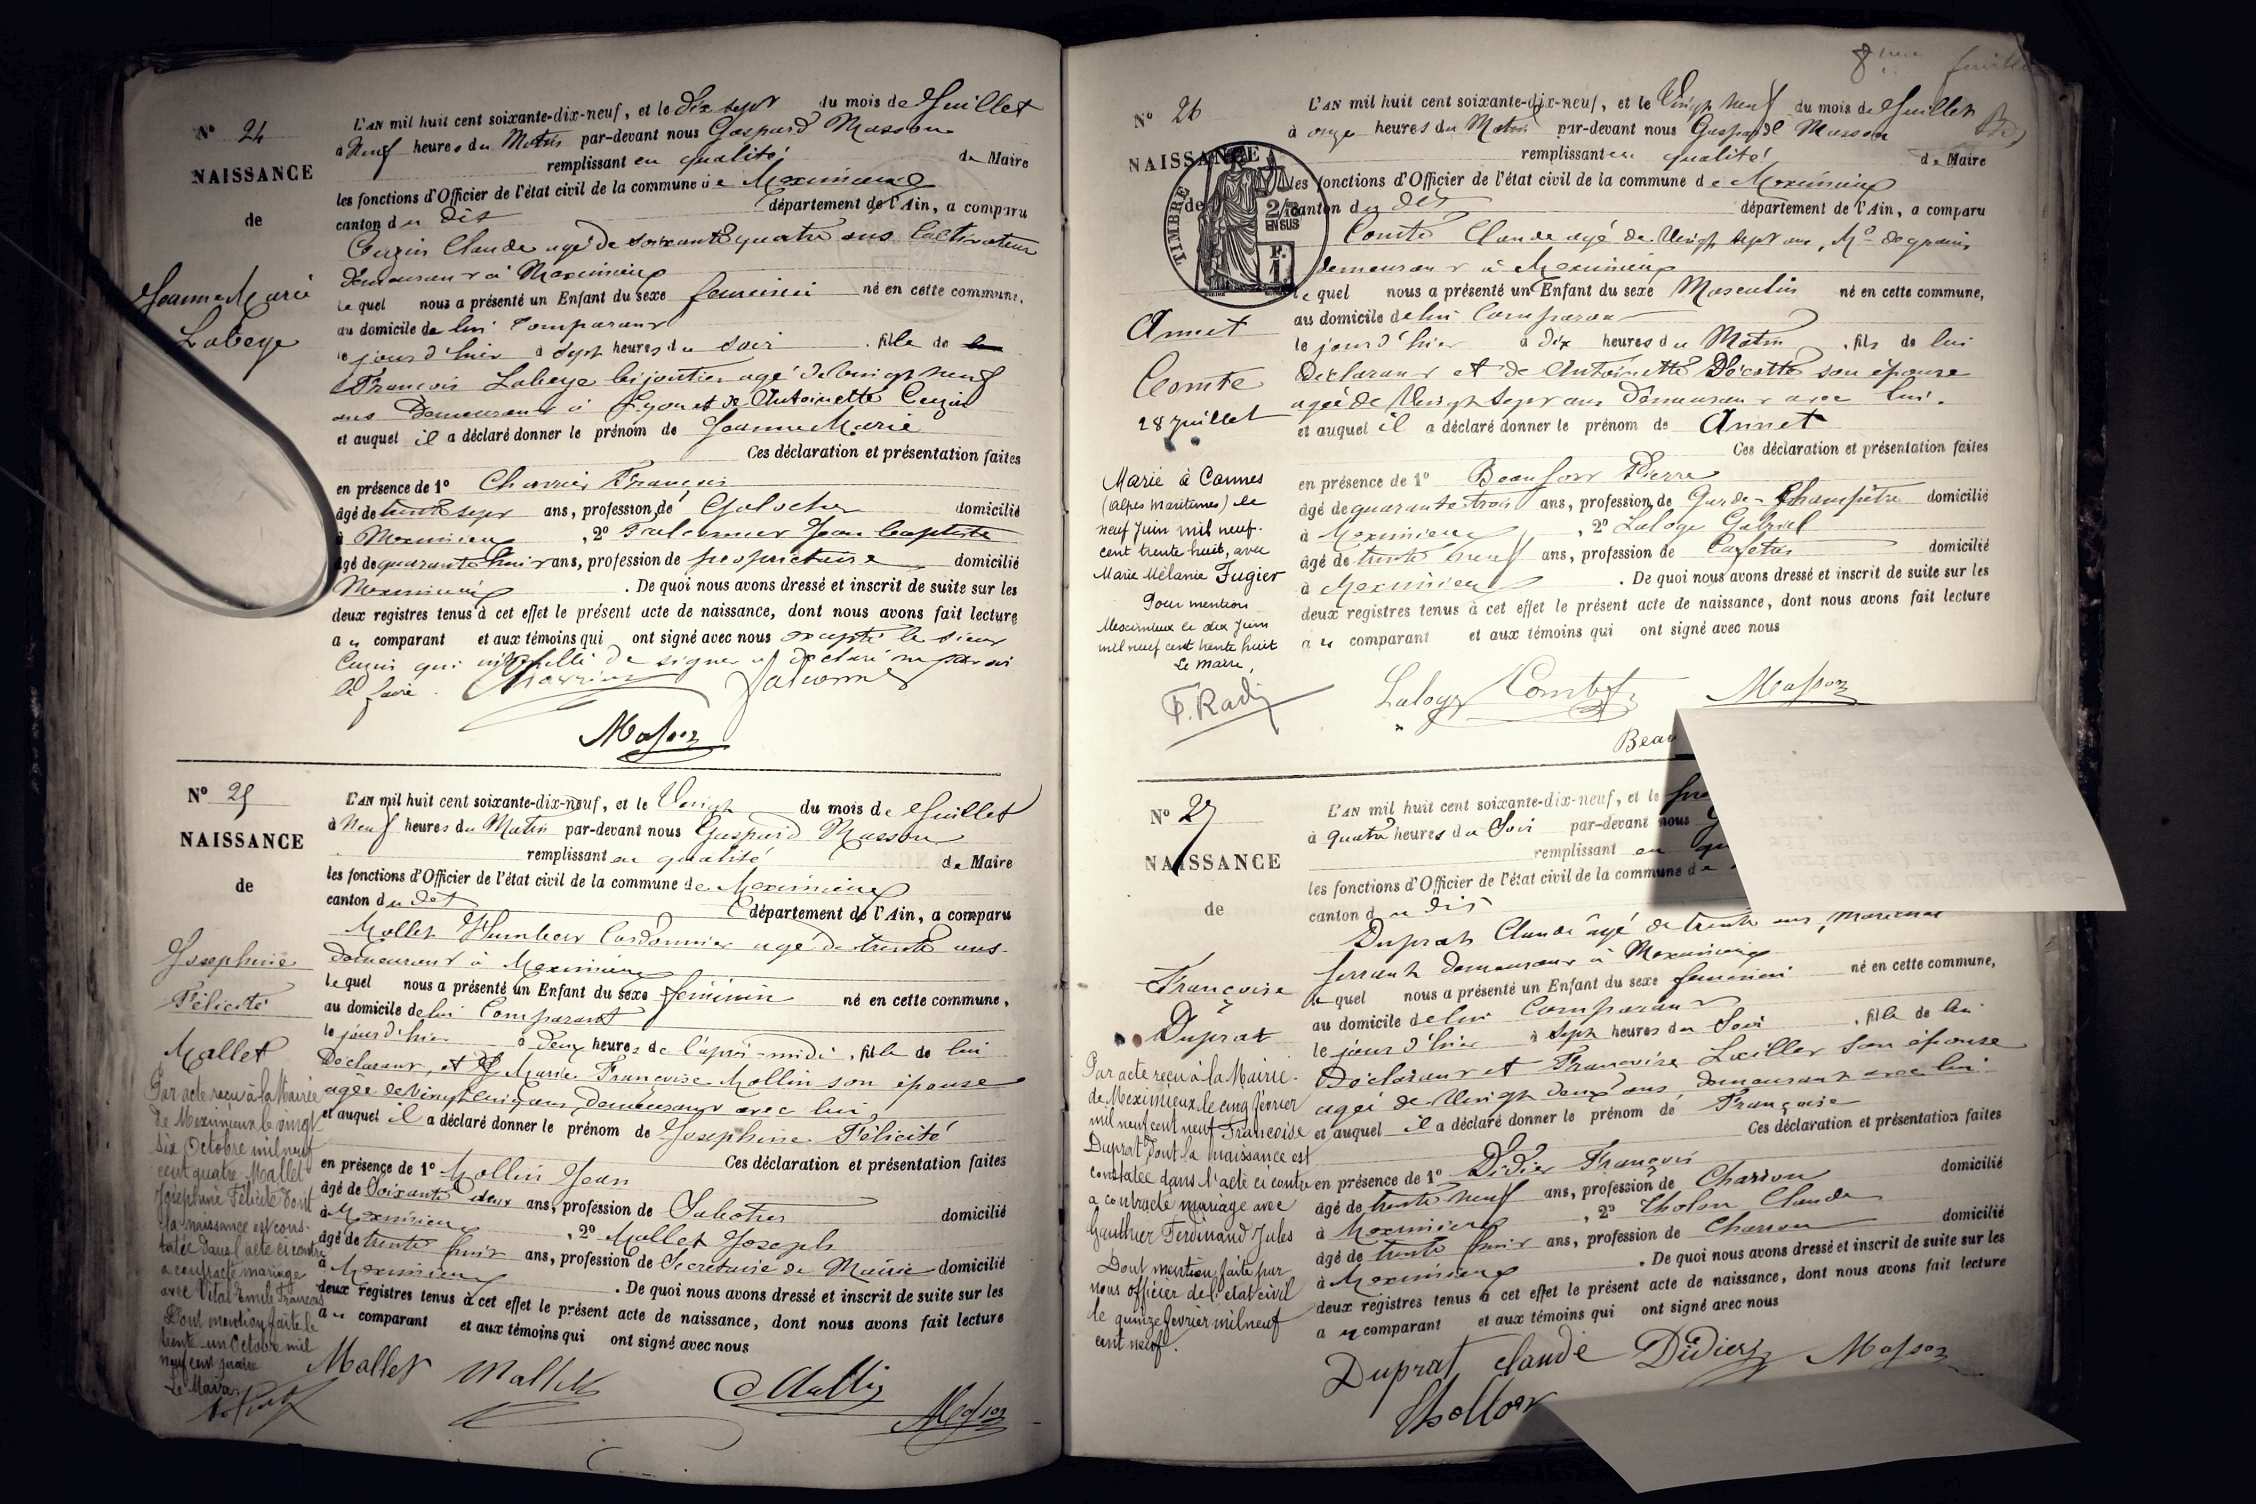 N° 24
NAISSANCE
de
Jeanne Marie
Labeye
L'AN mil huit cent soixante-dix-neuf, et le dix sept du mois de Juillet
à Neuf heures du Matin par-devant nous Gaspard Masson
remplissant en qualité de Maire
les fonctions d'Officier de l'état civil de la commune de Meximieux
canton du dit département de l'Ain, a comparu
Cuzin Claude agé de soixante quatre ans Cultivateur
demeurant à Meximieux
le quel nous a présenté un Enfant du sexe feminin né en cette commune,
au domicile de lui Comparant
le jour d'hier à sept heures du soir , fille de
François Labeye bijoutier agé de vingt neuf
ans Demeurant à Lyon et de Antoinette Cuzin
et auquel il a déclaré donner le prénom de Jeanne Marie
Ces déclaration et présentation faites
en présence de 1° Charrier François
âgé de trente sept ans, profession de Galocher domicilié
à Meximieux , 2° Falconnier Jean Baptiste
âgé de quarante huit ans, profession de propriétaire domicilié
Meximieux . De quoi nous avons dressé et inscrit de suite sur les
deux registres tenus à cet effet le présent acte de naissance, dont nous avons fait lecture
au comparant et aux témoins qui ont signé avec nous excepté le sieur
Cuzin qui interpellé de signer a déclaré ne savoir
le faire.
Charrier Falconnier
Masson
N° 25
NAISSANCE
de
Josephine
Félicité
Mallet
Par acte reçu à la Mairie
de Meximieux le vingt
six Octobre mil neuf
cent quatre Mallet
Josephine Félicité dont
la naissance est cons-
tatée dans l'acte ci contre
a contracté mariage
avec Vital Emile François
Dont mention faite le
trente un Octobre mil
neuf cent quatre
Le Maire
L'AN mil huit cent soixante-dix-neuf, et le Vingt du mois de Juillet
à Neuf heures du Matin par-devant nous Gaspard Masson
remplissant en qualité de Maire
les fonctions d'Officier de l'état civil de la commune de Meximieux
canton du dit département de l'Ain, a comparu
Mallet Humbert Cordonnier agé de trente ans
demeurant à Meximieux
le quel nous a présenté un Enfant du sexe féminin né en cette commune,
au domicile de lui Comparant
le jour d'hier à deux heures de l'après-midi , fille de lui
Déclarant, et de Marie Françoise Mollin son épouse
agée de Vingt cinq ans demeurant avec lui,
et auquel il a déclaré donner le prénom de Josephine Félicité
Ces déclaration et présentation faites
en présence de 1° Mollin Jean
âgé de Soixante deux ans, profession de Sabotier domicilié
à Meximieux , 2° Mallet Joseph
âgé de trente huit ans, profession de Secrétaire de Mairie domicilié
à Meximieux . De quoi nous avons dressé et inscrit de suite sur les
deux registres tenus à cet effet le présent acte de naissance, dont nous avons fait lecture
au comparant et aux témoins qui ont signé avec nous
Mallet Mallet Mollin
Masson
8me feuillet
N° 26
NAISSANCE
de
TIMBRE
2/10
EN SUS
F.
1.
Annet
Comte
28 Juillet
Marié à Cannes
(Alpes Maritimes) le
neuf Juin mil neuf
cent trente huit, avec
Marie Mélanie Fugier
Pour mention
Meximieux le dix Juin
mil neuf cent trente huit
Le Maire,
F. Radi
L'AN mil huit cent soixante-dix-neuf, et le Vingt neuf du mois de Juillet
à onze heures du Matin par-devant nous Gaspard Masson
remplissant en qualité de Maire
les fonctions d'Officier de l'état civil de la commune de Meximieux
canton du dit département de l'Ain, a comparu
Comte Claude agé de Vingt sept ans, Md de grains
demeurant à Meximieux
le quel nous a présenté un Enfant du sexe Masculin né en cette commune,
au domicile de lui Comparant
le jour d'hier à dix heures du Matin , fils de lui
Déclarant et de Antoinette Décotte son épouse
agée de Vingt sept ans Demeurant avec lui.
et auquel il a déclaré donner le prénom de Annet
Ces déclaration et présentation faites
en présence de 1° Beaufort Pierre
âgé de quarante trois ans, profession de Garde-Champêtre domicilié
à Meximieux , 2° Laloge Gabriel
âgé de trente neuf ans, profession de Cafetier domicilié
à Meximieux . De quoi nous avons dressé et inscrit de suite sur les
deux registres tenus à cet effet le présent acte de naissance, dont nous avons fait lecture
au comparant et aux témoins qui ont signé avec nous
Laloge Comte Masson
Beau
N° 27
NAISSANCE
de
Françoise
Duprat
Par acte reçu à la Mairie
de Meximieux le cinq février
mil neuf cent neuf Françoise
Duprat dont la naissance est
constatée dans l'acte ci contre
a contracté mariage avec
Gauthier Ferdinand Jules
Dont mention faite par
nous officier de l'état civil
le quinze février mil neuf
cent neuf.
L'AN mil huit cent soixante-dix-neuf, et le
à quatre heures du Soir par-devant nous
remplissant en
les fonctions d'Officier de l'état civil de la commune de
canton du dit
Duprat Claude âgé de trente ans, Maréchal
ferrant demeurant à Meximieux
le quel nous a présenté un Enfant du sexe feminin né en cette commune,
au domicile de lui Comparant
le jour d'hier à sept heures du Soir , fille de lui
Déclarant et Françoise Luiller son épouse
agée de Vingt deux ans, demeurant avec lui
et auquel il a déclaré donner le prénom de Françoise
Ces déclaration et présentation faites
en présence de 1° Didier François
âgé de trente neuf ans, profession de Charron domicilié
à Meximieux , 2° Tholon Claude
âgé de trente huit ans, profession de Charron domicilié
à Meximieux . De quoi nous avons dressé et inscrit de suite sur les
deux registres tenus à cet effet le présent acte de naissance, dont nous avons fait lecture
au comparant et aux témoins qui ont signé avec nous
Duprat Claude Didier Masson
Thollon